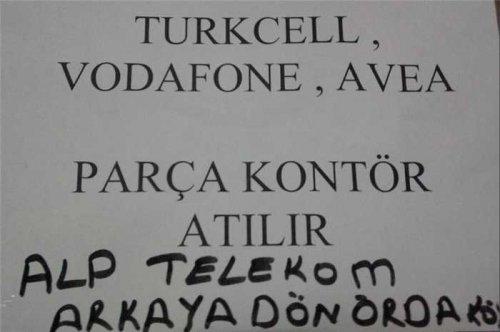 TURKCELL ,
VODAFONE , AVEA
PARÇA KONTÖR
ATILIR
ALP TELEKOM
ARKAYA DÖN ORDA